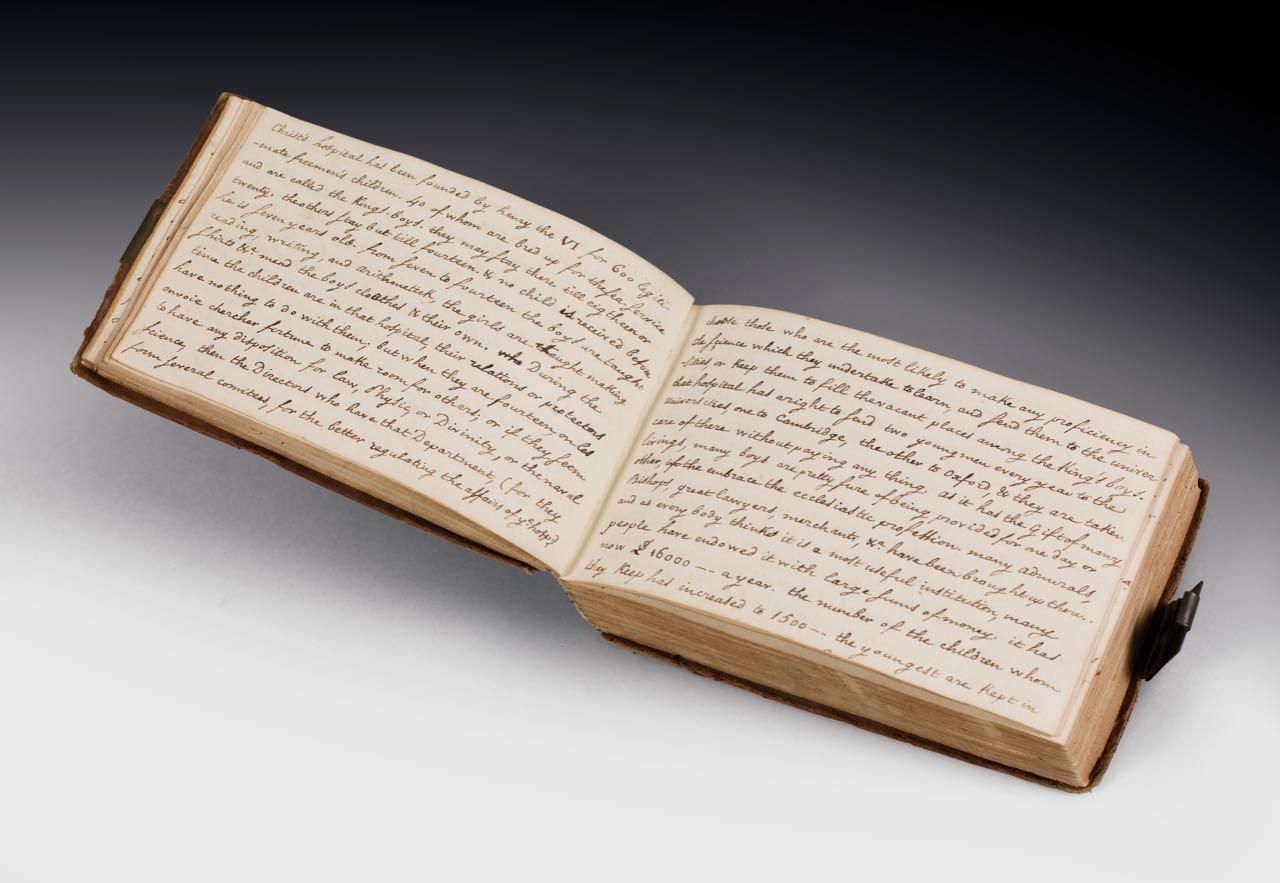 Christ's hospital has been founded by henry the VI for 600 legiti-
-mate freemen's children. 40 of whom are bred up for thesea-service
and are called the King's boys. they may stay there till eighteen or
twenty. theothers stay but till fourteen. & no child is received before
he is seven years old. from seven to fourteen the boys are taught
reading, writing, and arithmetick, the girls are thought making
shirts &c mend the boys cloathes & their own. During the
time the children are in that hospital, their relations or protectors
have nothing to do with them. but when they are fourteen on les
envoie chercher fortune to make room for others; or if they seem
to have any disposition for law, Physiq or Divinity, or the naval
science, then the Directors who have that Department, (for they
form several comitees, for the better regulating the affairs of ye. hosp.)
choose those who are the most likely to make any proficiency in
the science which they undertake to learn, and send them to the univer-
-sities or Keep them to fill the vacant places among the King's boys.
that hospital has aright to send two young men every year to the
universities, one to Cambridge, the other to Oxford, & they are taken
care of there without paying any thing. as it has the Gift of many
livings, many boys are pretty sure of being provided for one day or
other, if the embrace the ecclesiastic profession. many admirals
Bishops, great lawyers, merchants, &c. have been brought up there..
and as every body thinks it is a most useful institution, many
people have endowed it with large sums of money. it has
now £ 16000 -.. a year. the number of the children whom
they Keep has increased to 1500 -.. the youngest are Kept in